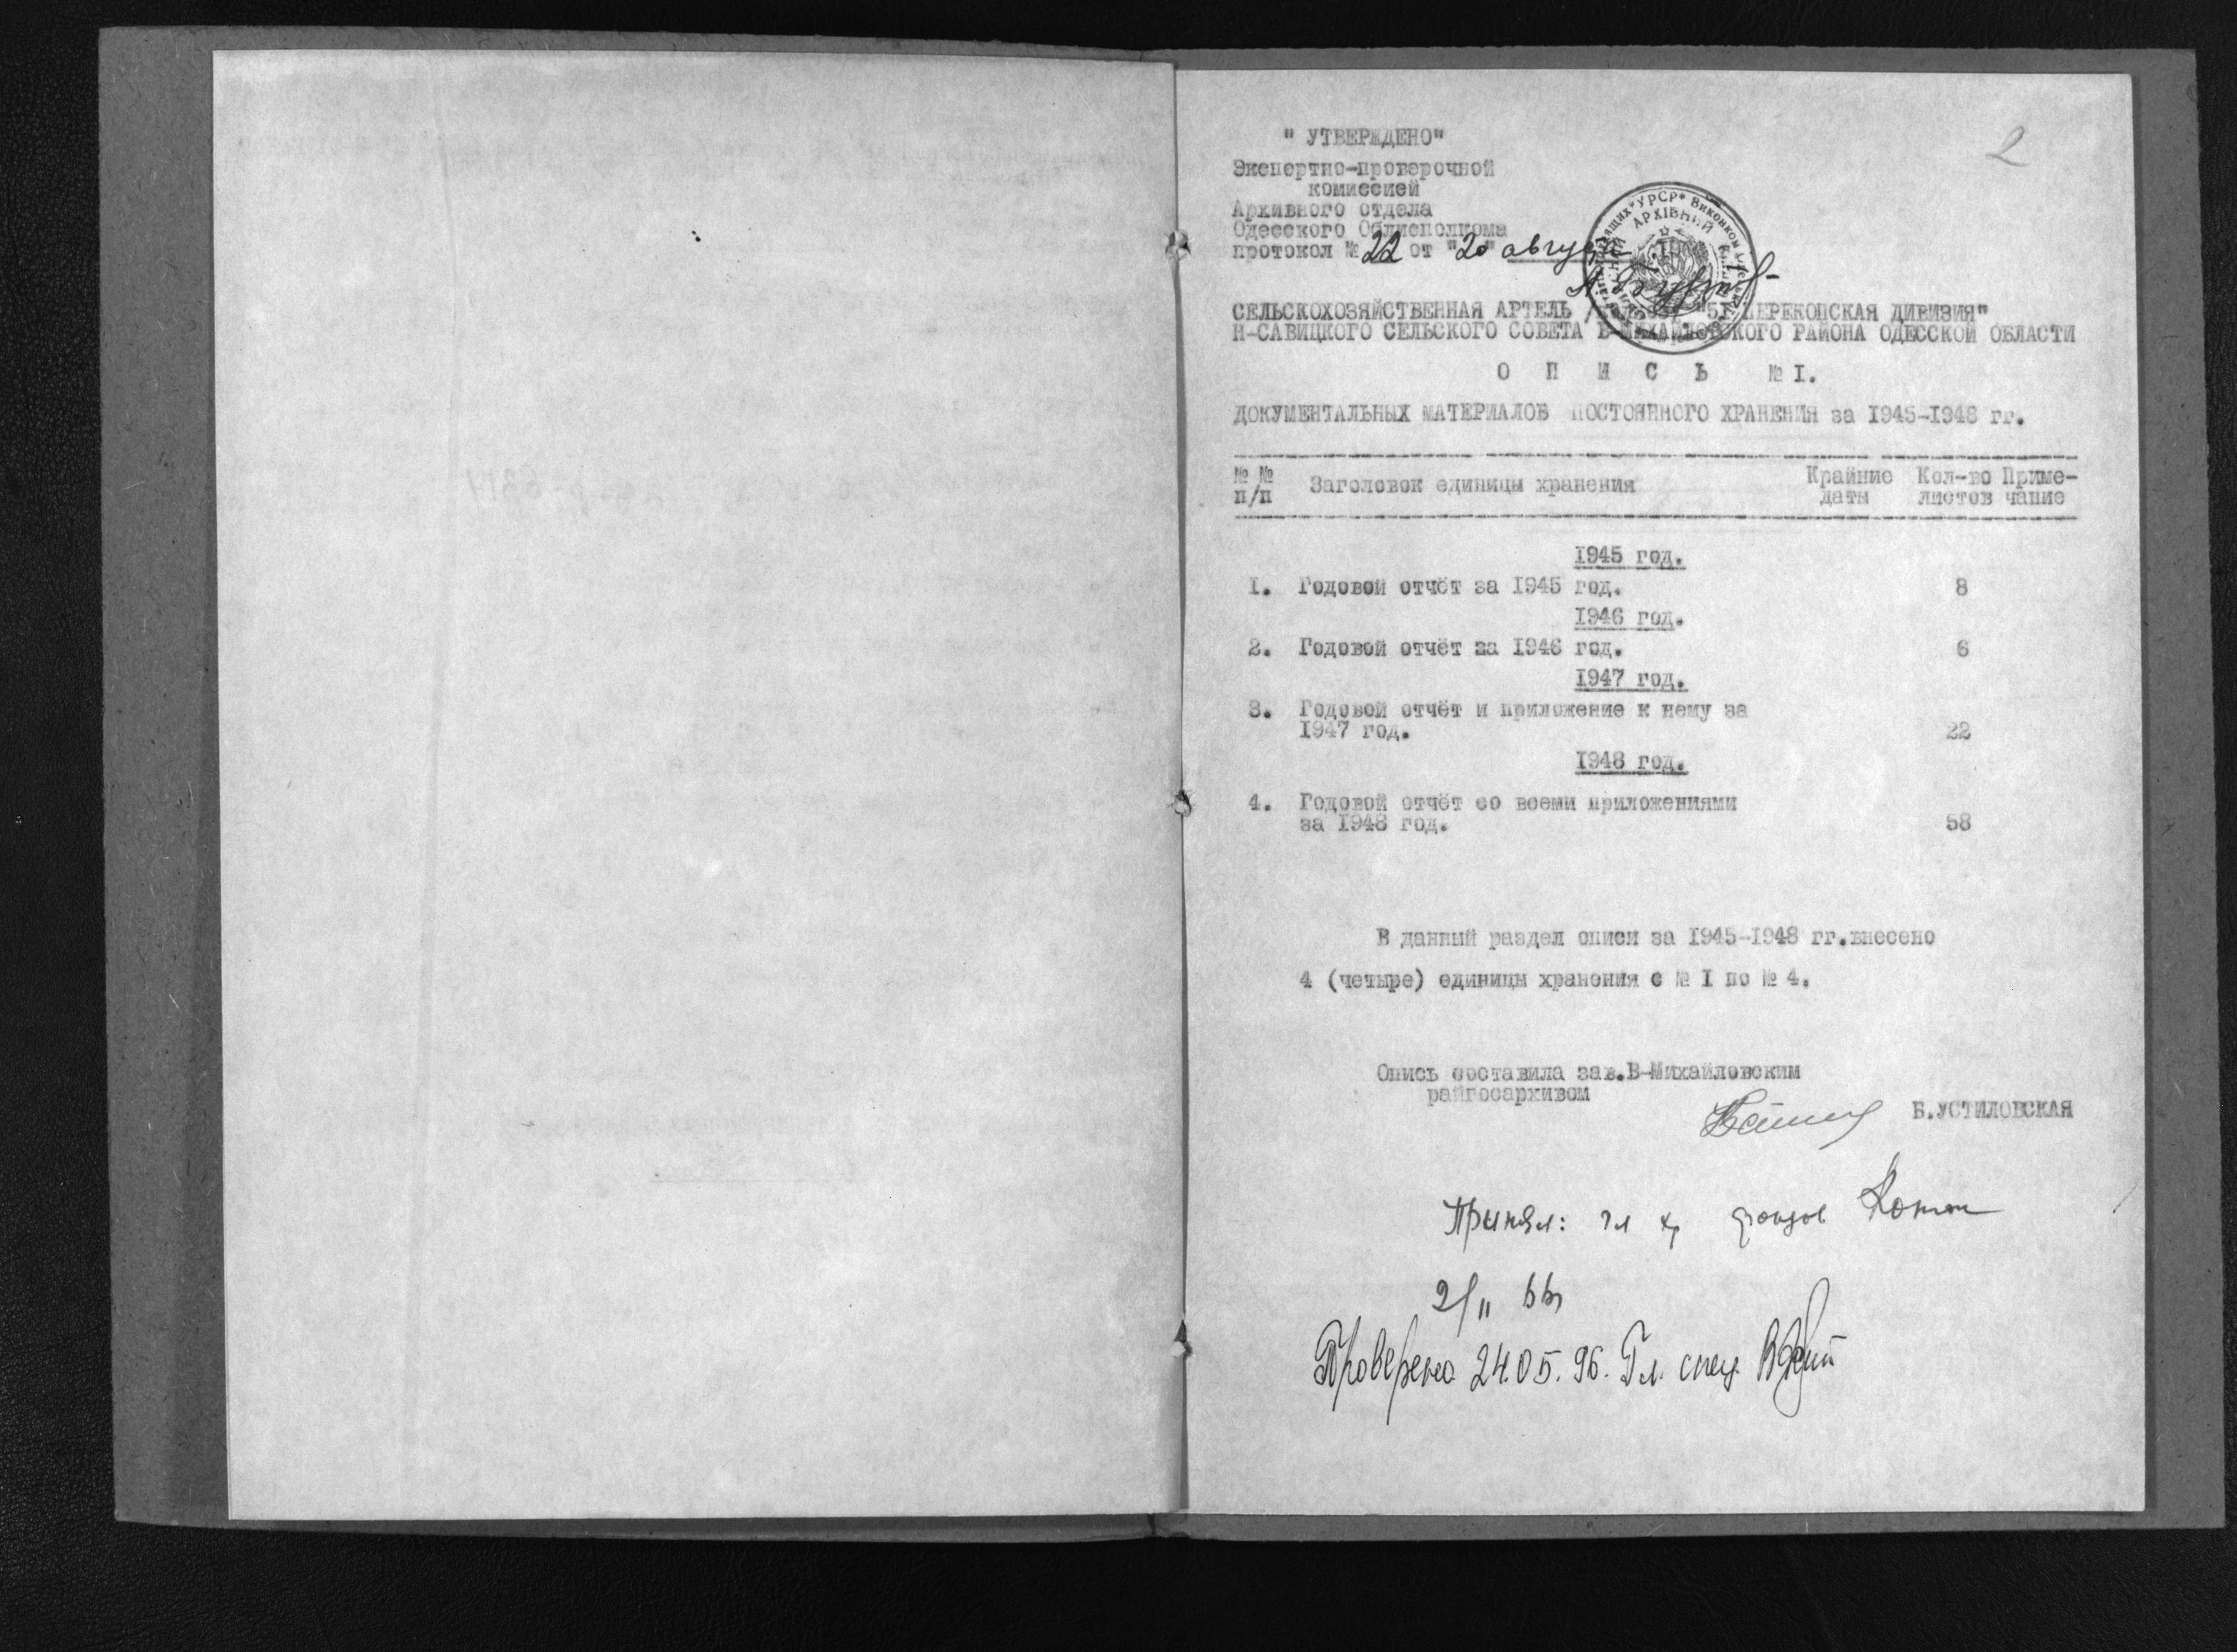 2
" УТВЕРЖДЕНО"
Экспертно-проверочной
комиссией
Архивного отдела
Одесского Облисполкома
протокол № 22 от "20" августа
УРСР * Виконком
АРХІВНИЙ
СЕЛЬСКОХОЗЯЙСТВЕННАЯ АРТЕЛЬ "51 ПЕРЕКОПСКАЯ ДИВИЗИЯ"
Н-САВИЦКОГО СЕЛЬСКОГО СОВЕТА В-МИХАЙЛОВСКОГО РАЙОНА ОДЕССКОЙ ОБЛАСТИ
О П И С Ь № I.
ДОКУМЕНТАЛЬНЫХ МАТЕРИАЛОВ ПОСТОЯННОГО ХРАНЕНИЯ за 1945-1948 гг.
№ № Заголовок единицы хранения Крайние Кол-во Приме-
п/п даты листов чание
1945 год.
I. Годовой отчёт за 1945 год. 8
1946 год.
2. Годовой отчёт за 1946 год. 6
1947 год.
3. Годовой отчёт и приложение к нему за
1947 год. 22
1948 год.
4. Годовой отчёт со всеми приложениями
за 1948 год. 58
В данный раздел описи за 1945-1948 гг.внесено
4 (четыре) единицы хранения с № I по № 4.
Опись составила зав.В-Михайловским
райгосархивом
Б.УСТИЛОВСКАЯ
Принял: гл хр фондов
2/II
Проверено 24.05.96. Гл. спец.